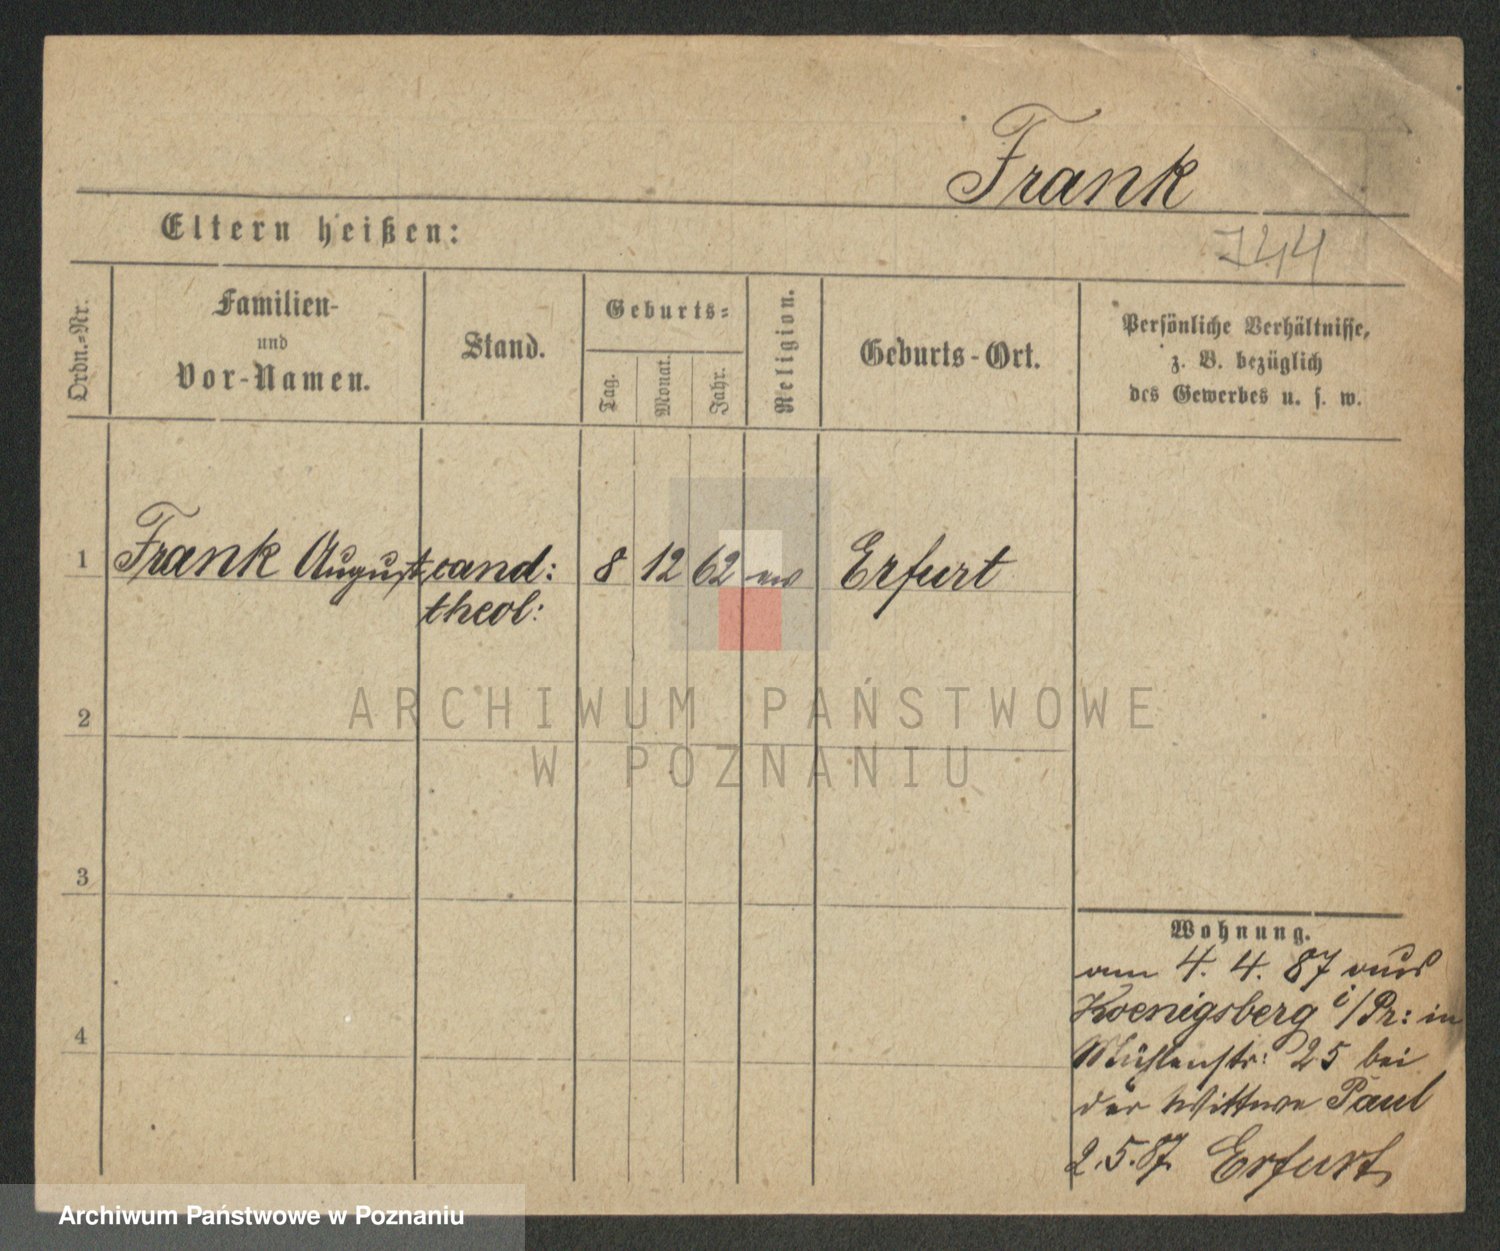 Frank
Eltern heißen:
744
Ordn.-Nr.
Familien-
und
Vor-Namen.
Stand.
Geburts-
Tag.
Monat.
Jahr.
Religion.
Geburts-Ort.
Persönliche Verhältnisse,
z. B. bezüglich
des Gewerbes u. s. w.
1 Frank August cand: 8 12 62 ev Erfurt
theol:
2
ARCHIWUM PAŃSTWOWE
W POZNANIU
3
Wohnung.
am 4. 4. 87 aus
Koenigsberg i/Pr: in
4
Mühlenstr: 25 bei
der Wittwe Paul
2.5.87. Erfurt
Archiwum Państwowe w Poznaniu